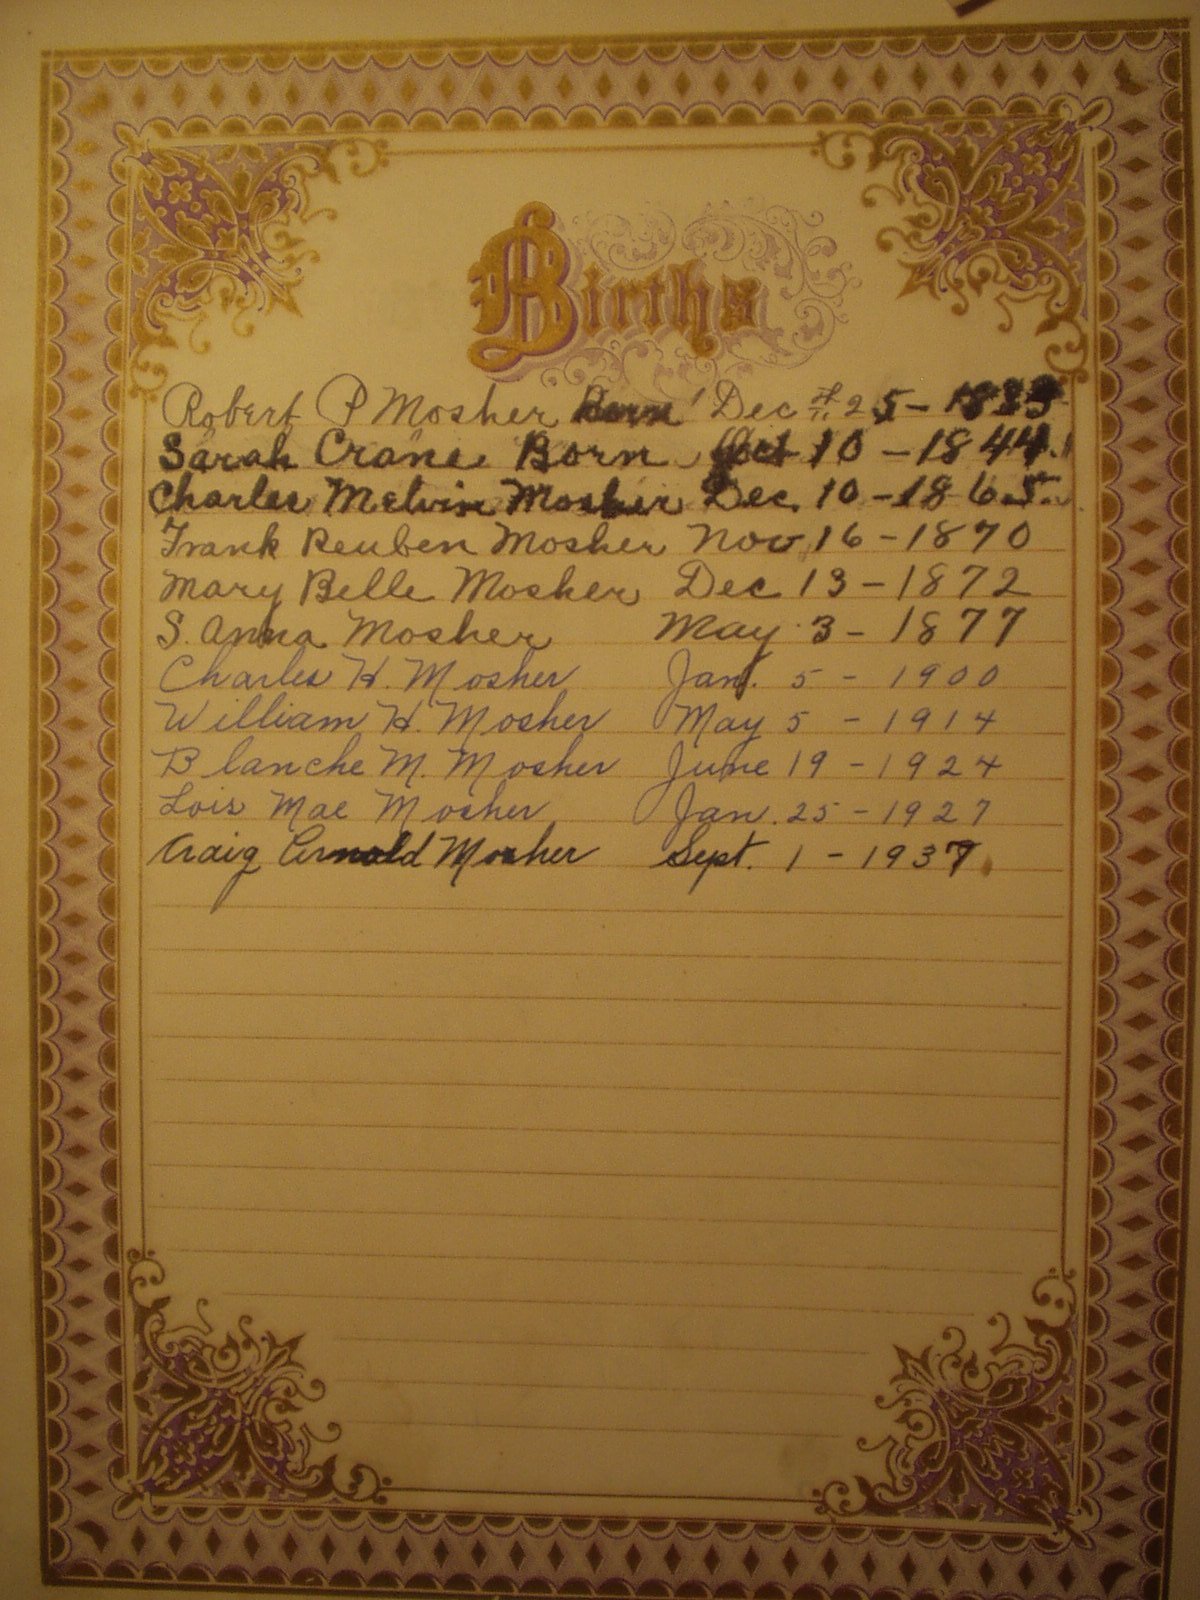 Births
Robert P Mosher Born Dec 25 - 1835
Sarah Crane Born Oct 10 - 1844
Charles Melvin Mosher Dec. 10 - 1865
Frank Reuben Mosher Nov 16 - 1870
Mary Belle Mosher Dec 13 - 1872
S. Anna Mosher May 3 - 1877
Charles H. Mosher Jan. 5 - 1900
William H. Mosher May 5 - 1914
Blanche M. Mosher June 19 - 1924
Lois Mae Mosher Jan. 25 - 1927
Craig Arnold Mosher Sept. 1 - 1937